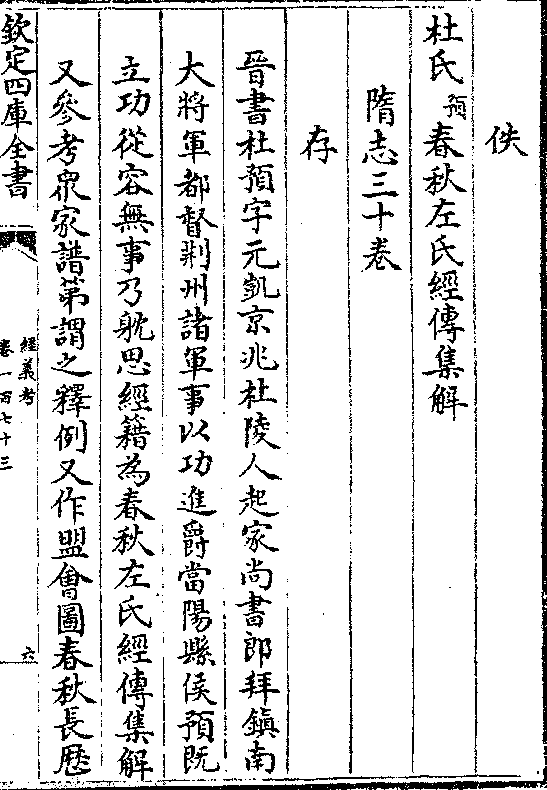 佚
杜氏預春秋左氏經傳集解
隋志三十卷
存
晉書杜預字元凱京兆杜陵人起家尚書郎拜鎮南
大將軍都督荆州諸軍事以功進爵當陽縣侯預既
立功從容無事乃躭思經籍為春秋左氏經傳集解
又參考衆家譜第謂之釋例又作盟㑹圖春秋長歴
欽定四庫全書
經義考
卷一百七十三
六